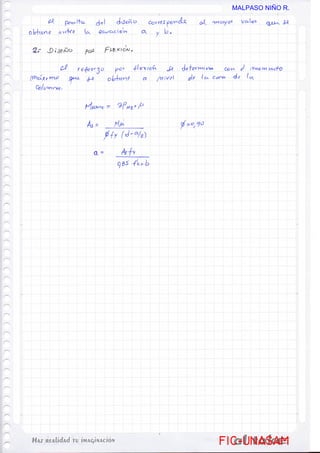 MALPASO NIÑO R.
El peralte del diseño corresponde al mayor valor que se
obtiene entre la ecuación a y b.
2.- DISEÑO POR FLEXIÓN.
El refuerzo por flexión se determina con el momento
máximo que se obtiene a nivel de la cara de la
columna.
As = Mu
φ fy (d-a/2)
φ=0,90
a = As fy
0,85 f'c b
Haz realidad tu imaginación
FIC-UNASAM